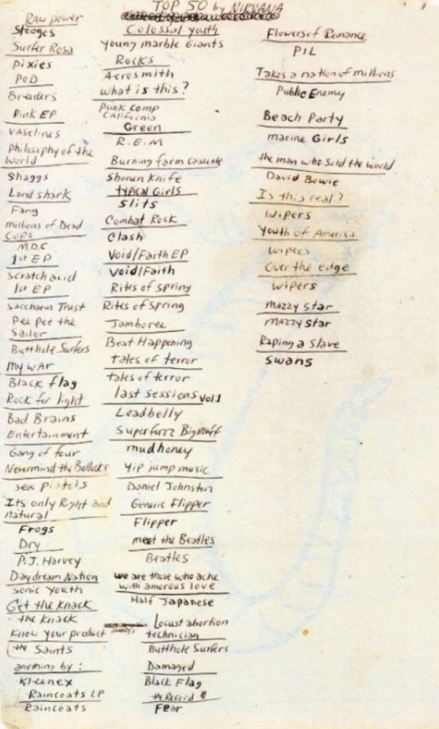 TOP 50 by NIRVANA
Raw power
Stooges
Surfer Rosa
Pixies
POD
Breeders
Pink EP
vaselines
Philosphy of the
World
Shaggs
Land shark
Fang
millions of Dead
Cops
M.D.C
1st EP
Scratch acid
1st EP
Saccharin Trust
Pee pee the
Sailor
Butthole Surfers
My WAr
Black flag
Rock for light
Bad Brains
Entertainment
Gang of four
Nevermind the Bollocks
sex pistols
Its only Right and
natural
Frogs
Dry
P.J. Harvey
Daydream Nation
Sonic Youth
Get the Knack
the Knack
Know your product
the Saints
anything by:
Kleenex
Raincoats LP
Raincoats
Colossal youth
young marble Giants
Rocks
Aerosmith
What is this?
Punk comp
California
Green
R.E.M
Burning farm Cassette
Shonen Knife
typical Girls
slits
Combat Rock
Clash
Void/Faith EP
Void/Faith
Rites of Spring
Rites of Spring
Jamboree
Beat Happening
tales of terror
tales of terror
last sessions vol.1
Leadbelly
Superfuzz Bigmuff
mudhoney
Yip jump music
Daniel Johnston
Generic Flipper
Flipper
meet the Beatles
Beatles
we are those who ache
with amorous love
Half Japanese
Locust abortion
technician
Butthole Surfers
Damaged
Black Flag
the Record
Fear
Flowers of Romance
PIL
Takes a nation of millions
Public Enemy
Beach Party
marine Girls
the man who sold the world
David Bowie
Is this real?
Wipers
Youth of America
wipers
Over the edge
wipers
mazzy star
mazzy star
Raping a slave
swans